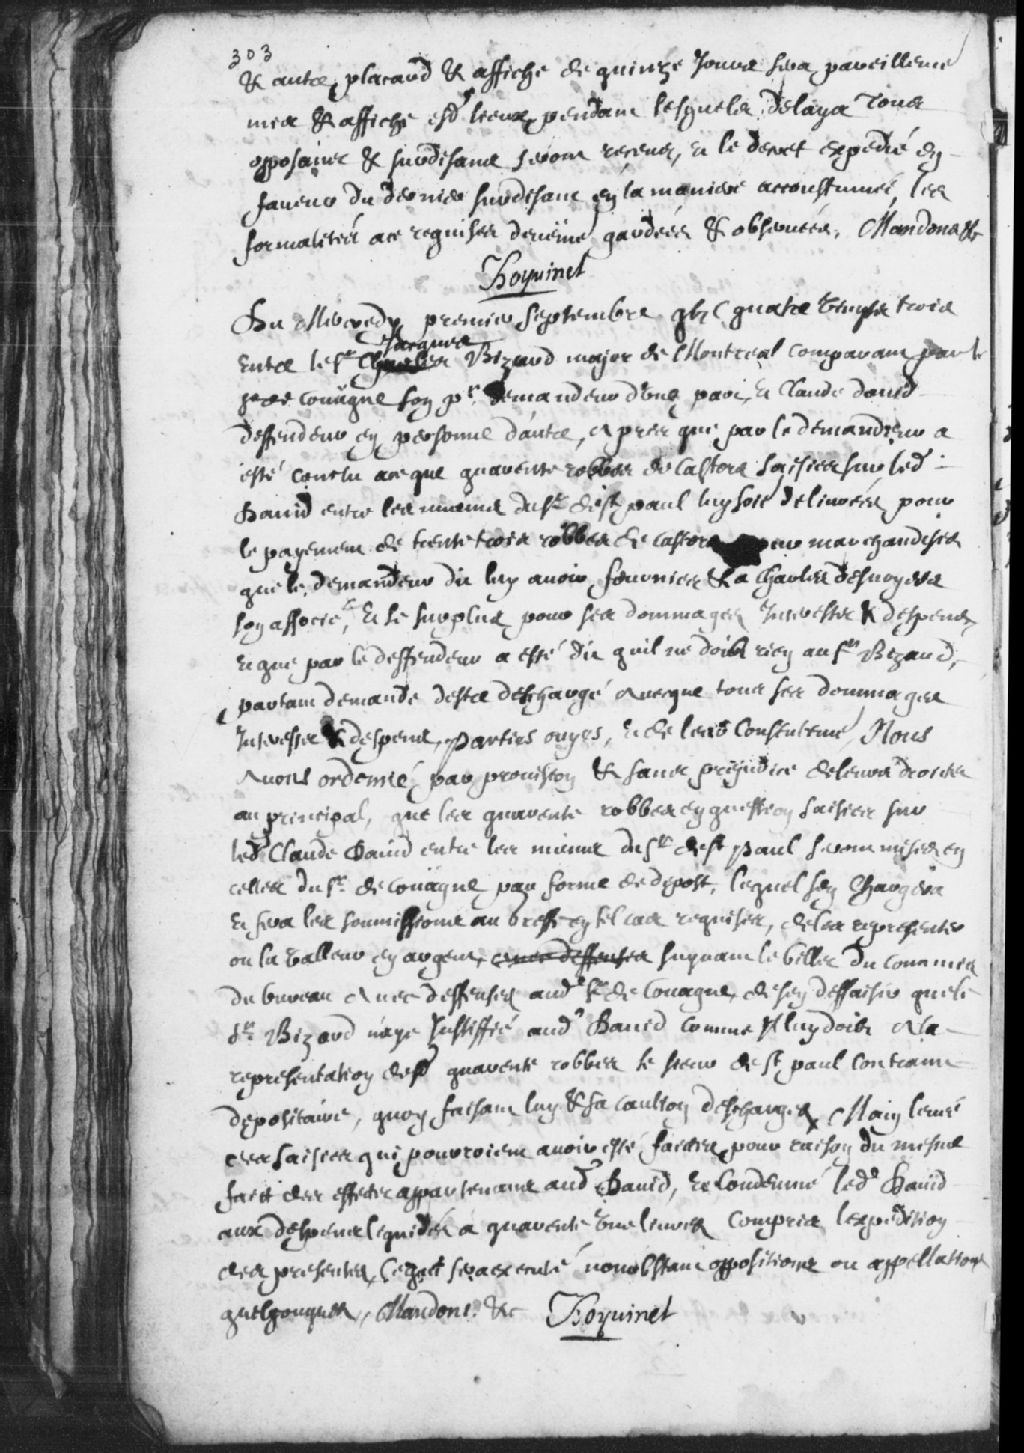 303
& autre placard & affiche de quinze Jours sera pareillemt
mis & affiché esd lieux pendant lesquels delays Tous
opposants & surdisants seront receus, et le decret expedié en
faveur du dernier surdisant en la maniere accoustumée, les
formalités ace requises gardées & observées, Mandons &c
Boyvinet
Du Mercredy premier Septembre quatre vingts trois
Entre le sr Charles Jacques Bizard major de Montreal comparant par le
sr de Coüagne son pr demandeur d'une part, Et Claude David
deffendeur en personne d'autre, Apres que par le demandeur a
esté conclu ace que quarente robbes de Castors saisies sur led
David entre les mains du sr de st paul luy soit delivrées pour
le payement de trente trois robbes de castors pour marchandises
que le demandeur dit luy avoir fournies & a Charles Desnoyers
son associé, Et le surplus pour ses dommages Interests & despens
Et que par le deffendeur a esté dit quil ne doibt rien au sr Bizard,
partant demande destre deschargé avecque tous ses dommages
Interests & despens, parties ouyes, et de leurs Consentemt Nous
Avons ordonné par provision & sans prejudice de leurs droicts
au principal, que les quarente robbes en question saisies sur
led Claude David entre les mains du sr de st paul seront mises en
celles du sr de coüagne par forme de depost, lequel sen Chargera
Et fera les soumissions au greffe en tel cas requises, de les representer
ou la valleur en argent, avec deffenses suivant le billet du commis
du bureau Avec deffenses aud sr de Coüagne, de sen deffaisir que le
sr Bizard n'aye Justiffié aud David comme Il luy doibt A la
representation desd quarente robbes le sieur de st paul contraint
depositaire, quoy faisant luy & sa caution deschargés, Main levée
des saisies qui pourroient avoir esté faictes pour raison du mesme
fait des effets appartenans aud David, Et Condemné led David
aux despens liquidés a quarente une livres compris lexpedition
des presentes, Ce qui sera executé nonobstant oppositions ou appellations
quelconques, Mandons. &c Boyvinet